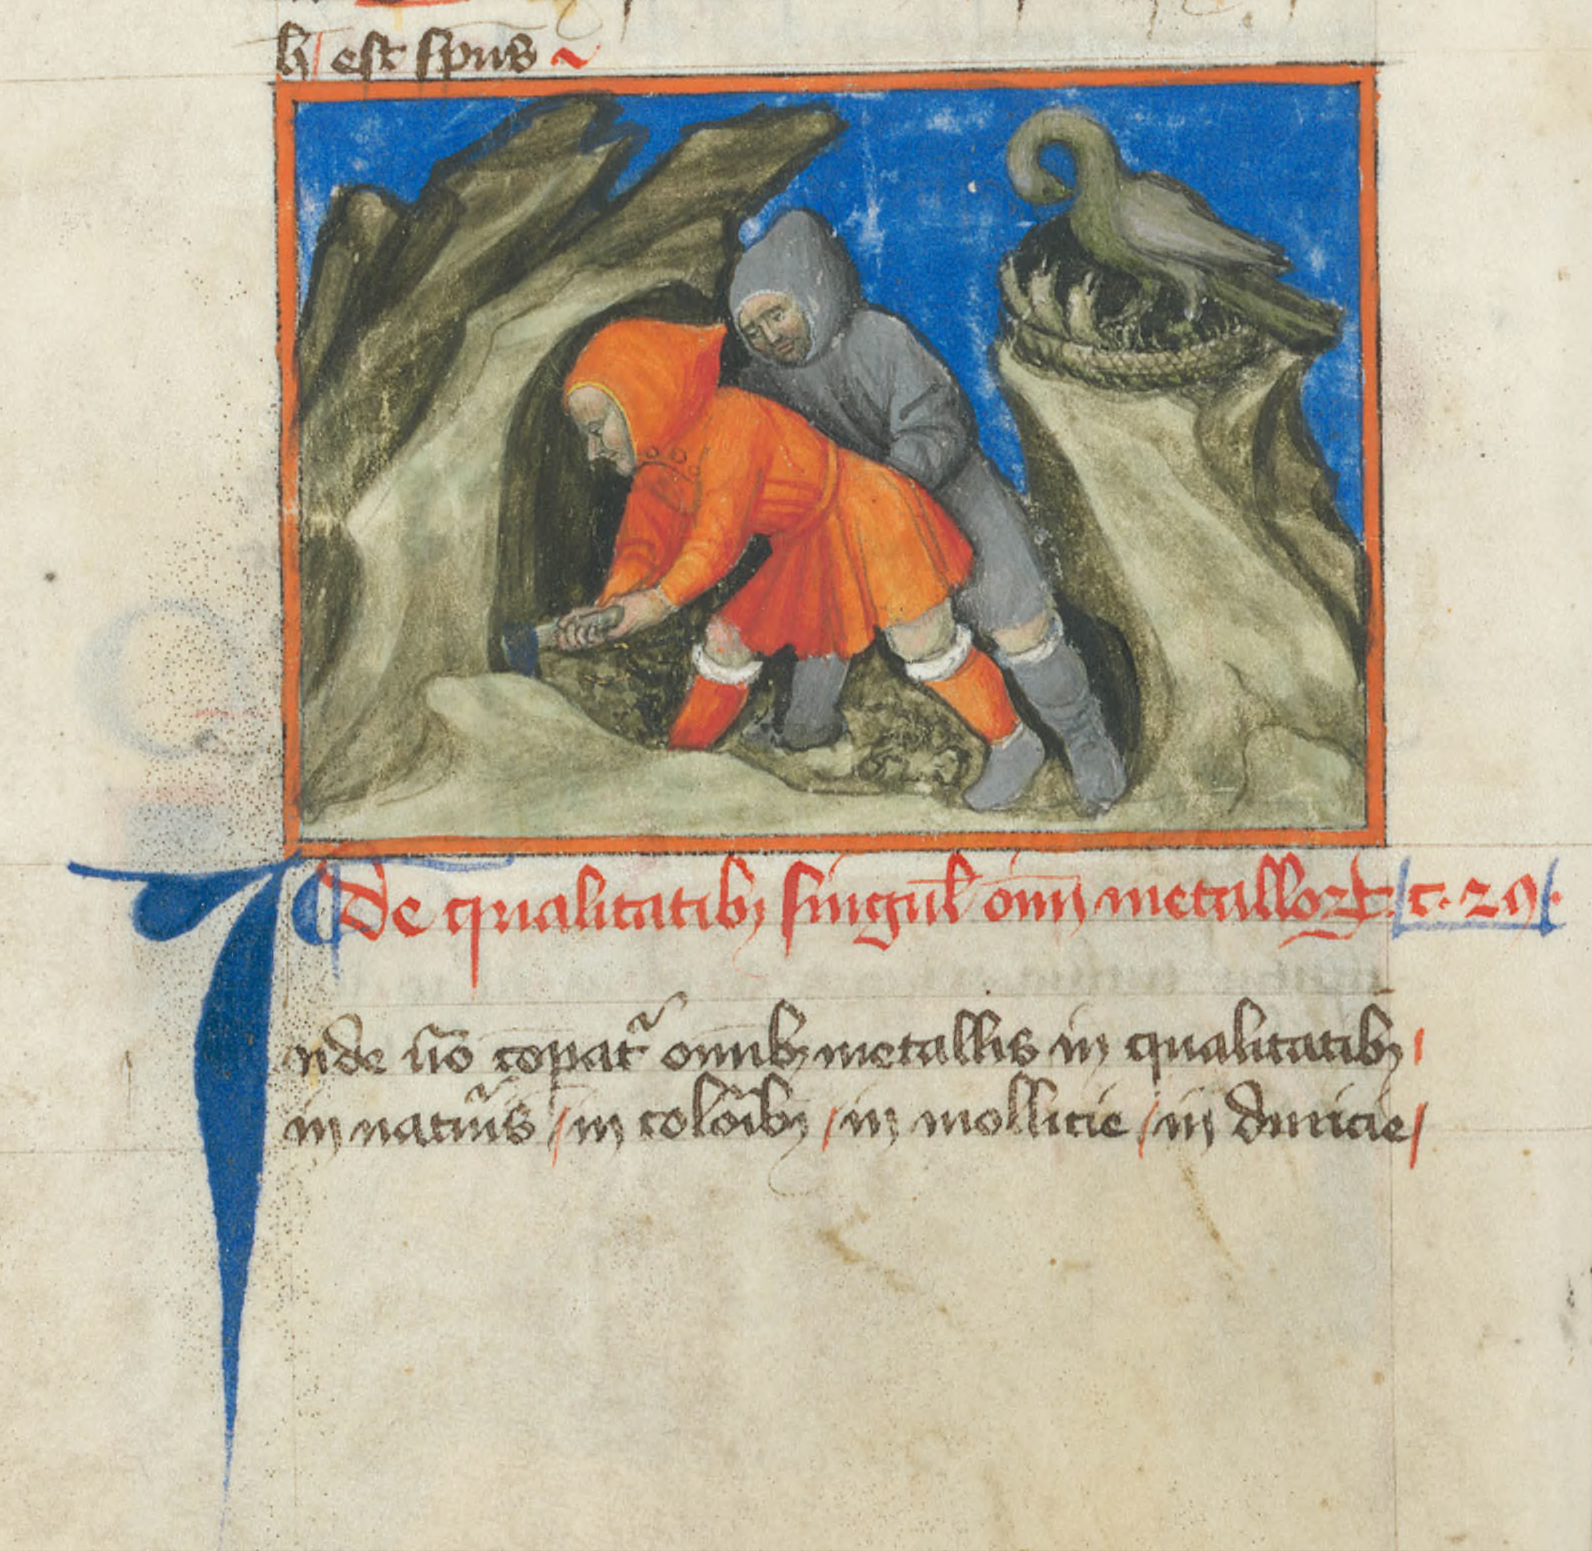 h est spūs
De qualitatibꝫ singul̄ oīm metalloꝝ c. 29
Inde ūo cōpat᷑ omībꝫ metallis in qualitatibꝫ
in naturis / in colōibꝫ / in mollicie / in duricie /